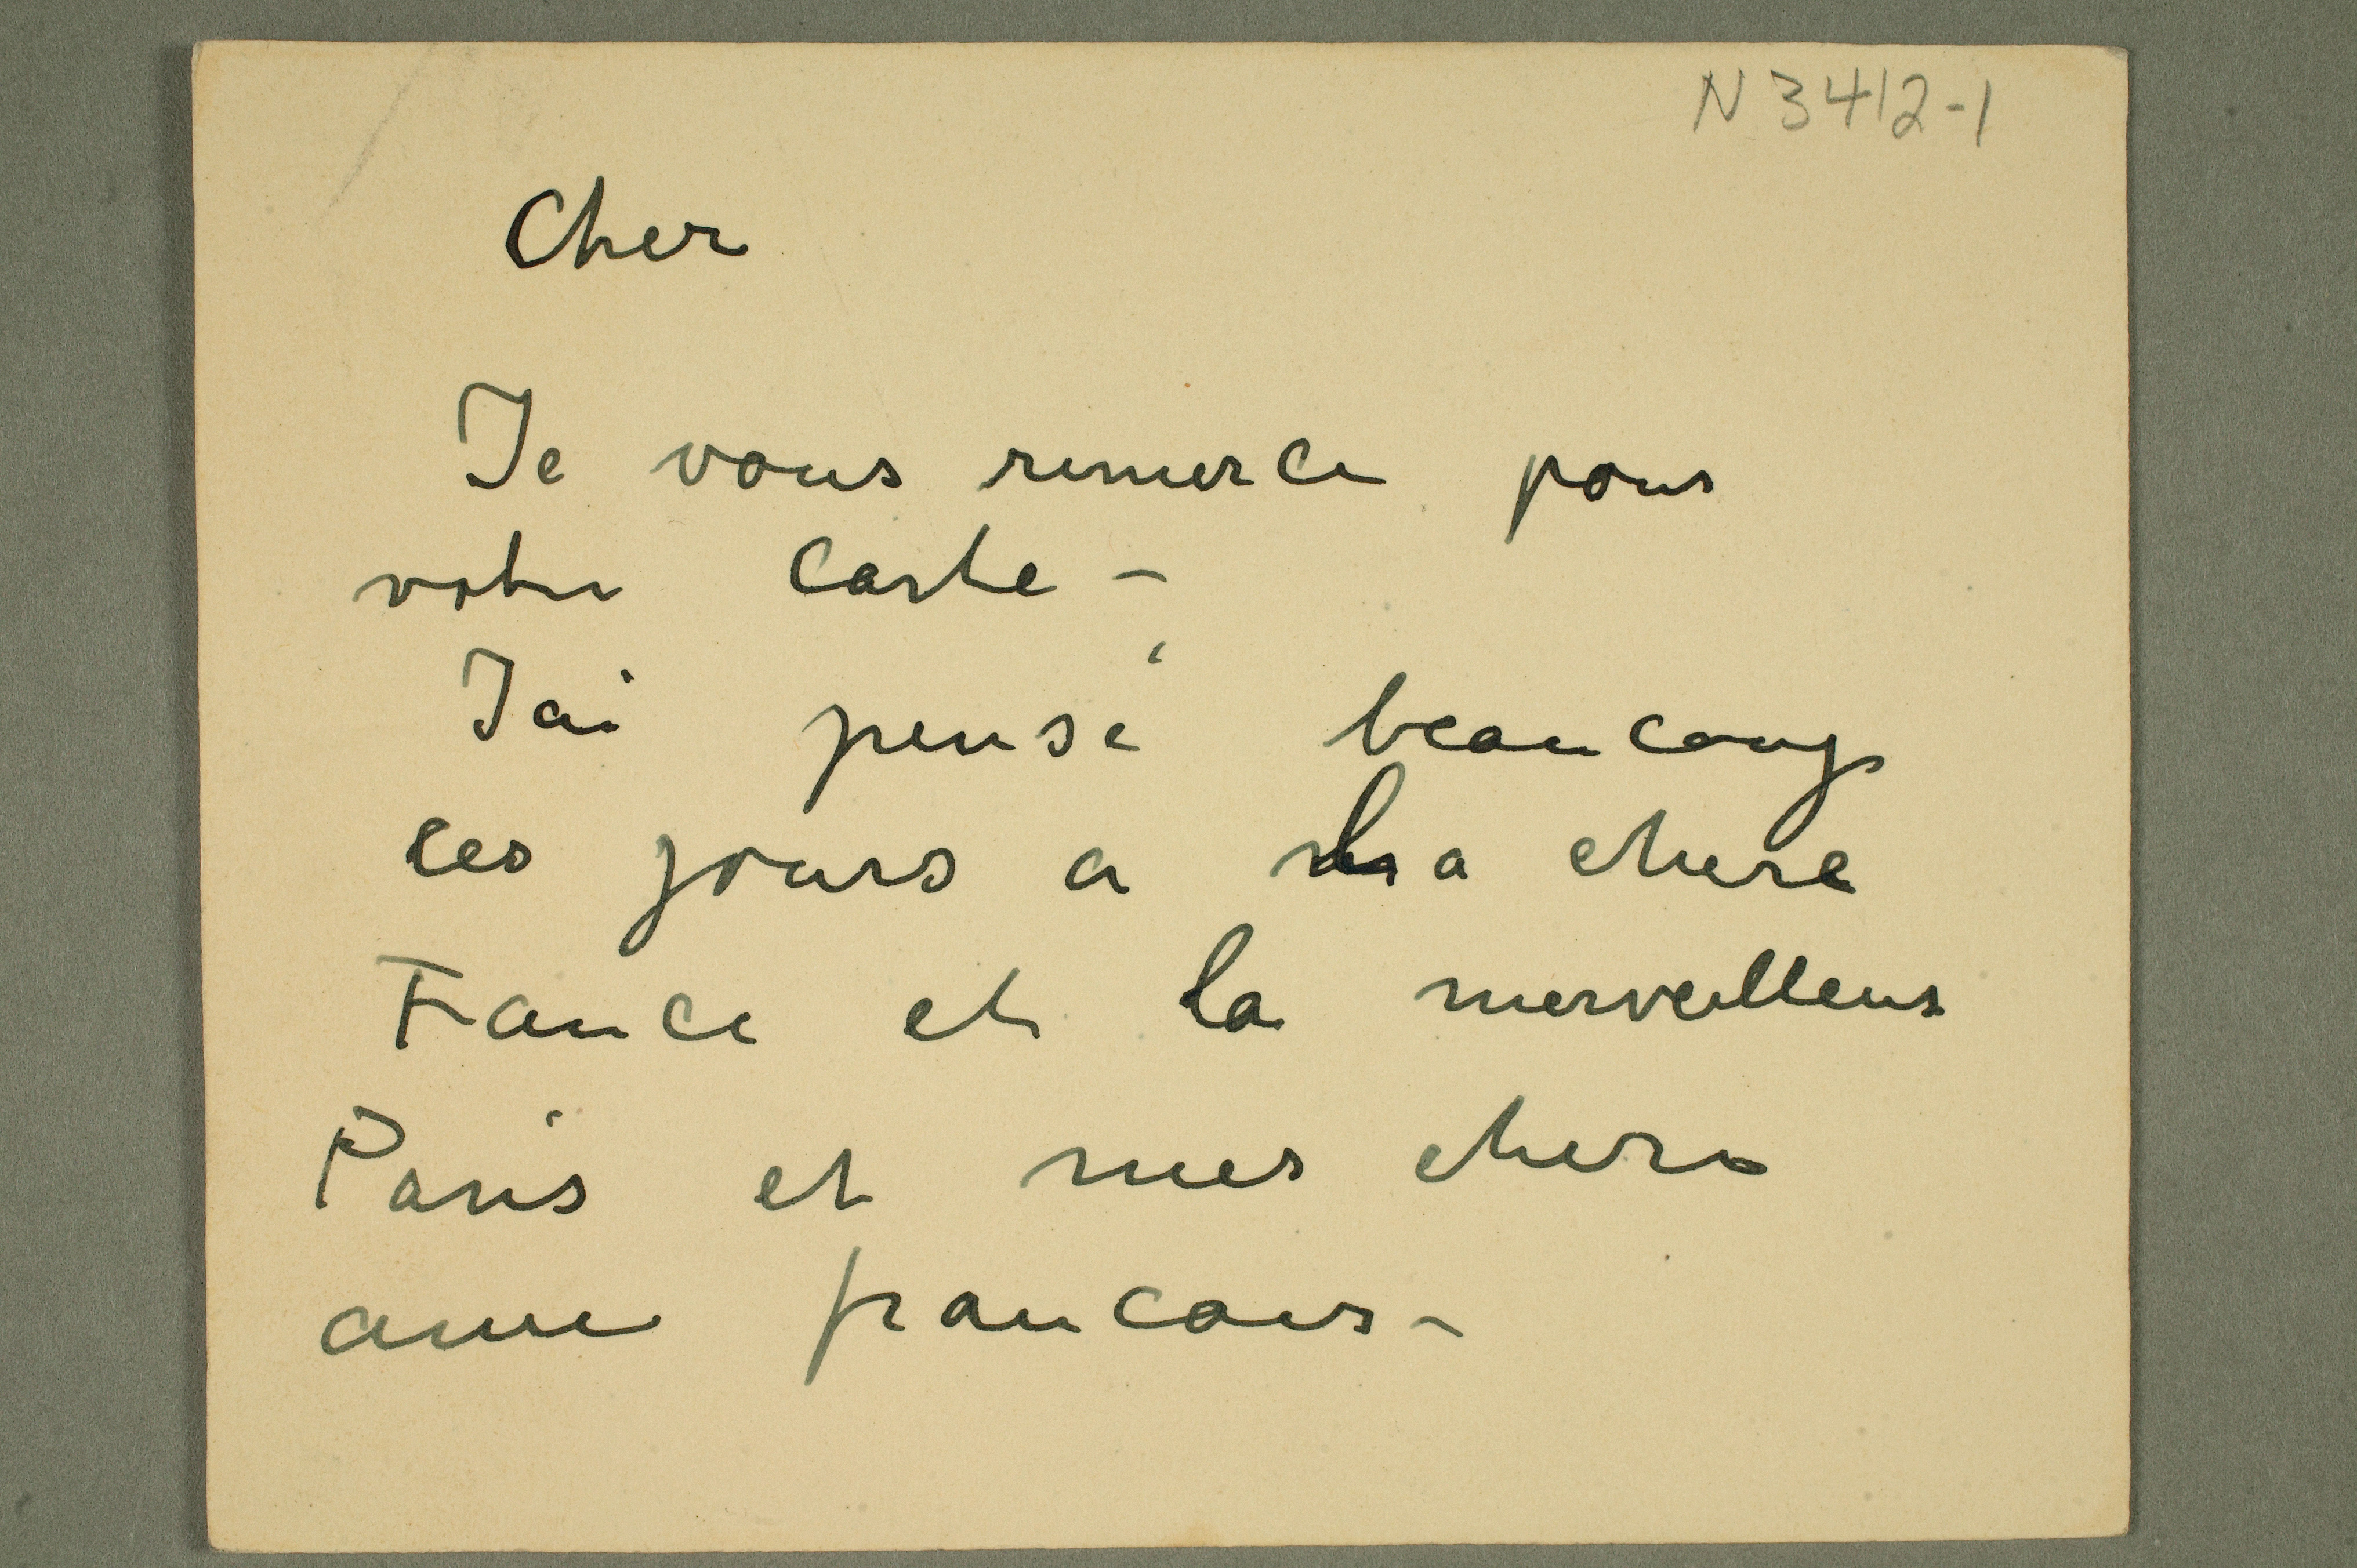 N 3412-1
Cher
Je vous remerce pour
votre carte –
J'ai pensé beaucoup
ces jours a la chere
France et la merveilleus
Paris et mes chers
ami francais –